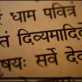 रं धाम पवित्रं
तं दिव्यमादिदे
षयः सर्वे देव